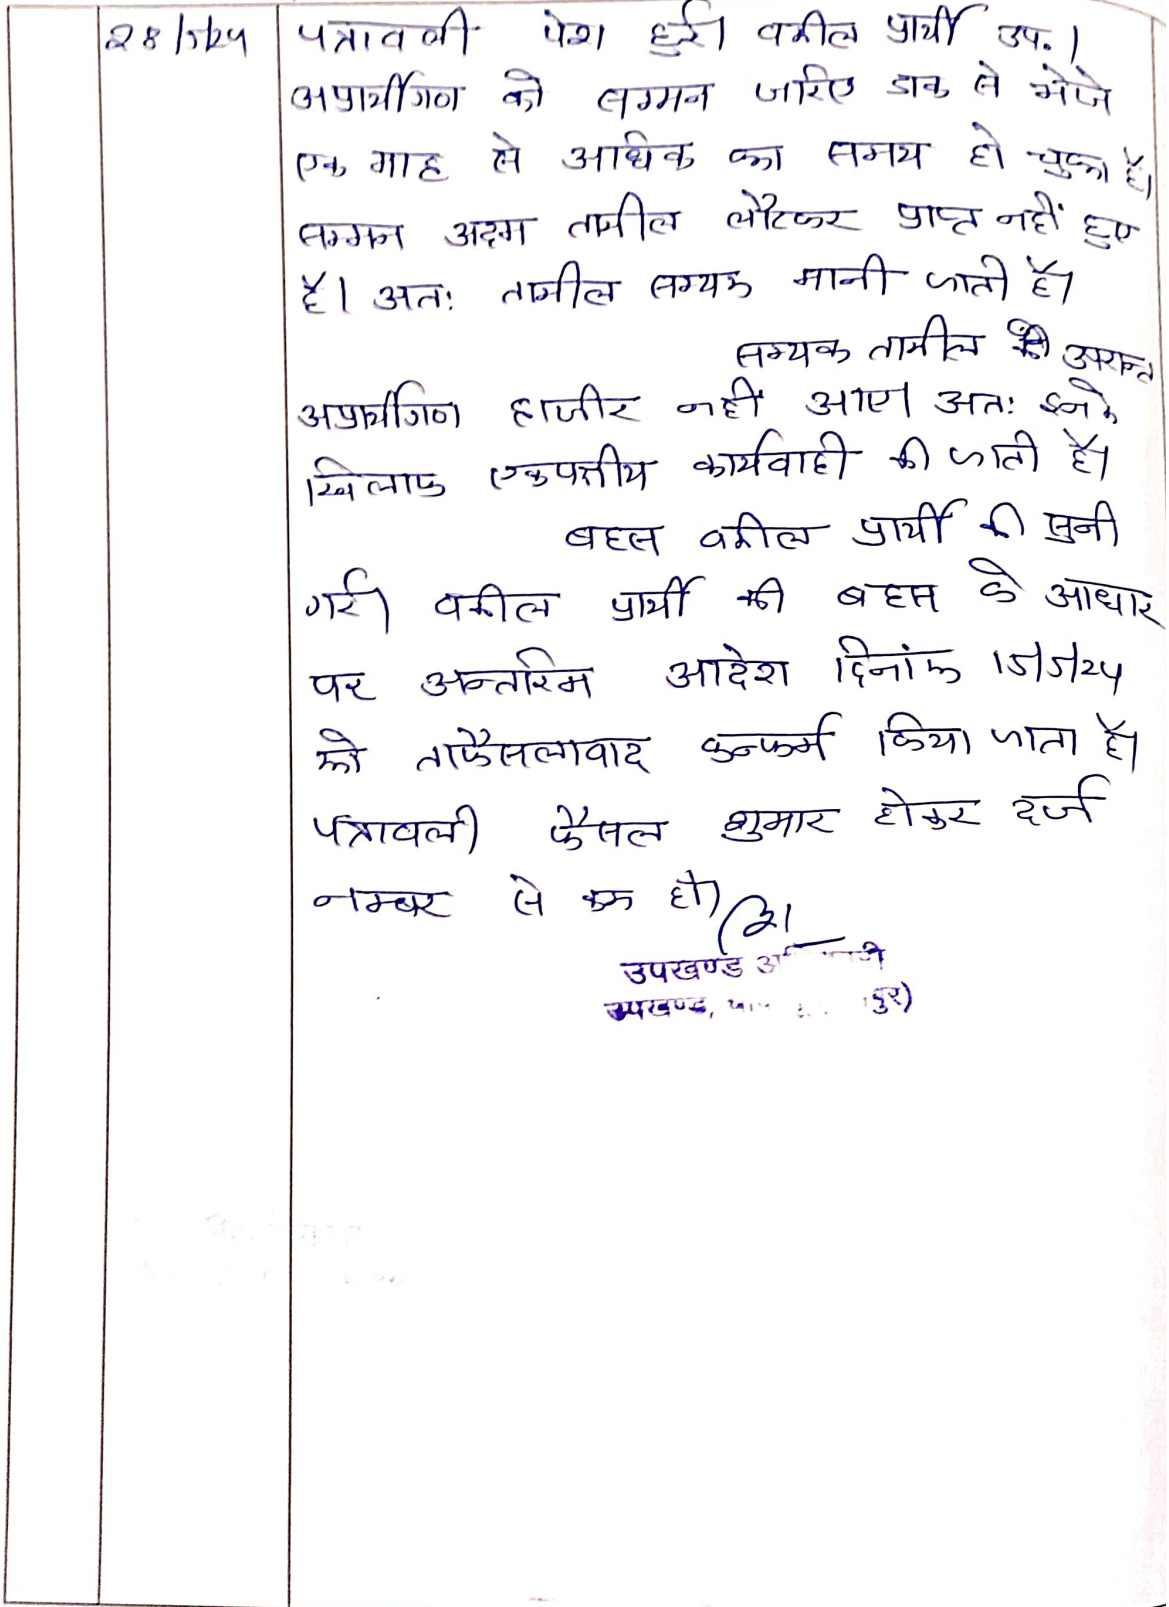 28/5/24 पत्रावली पेश हुई। वकील प्रार्थी उप.।
अप्रार्थीगण को सम्मन जरिए डाक से भेजे
एक माह से अधिक का समय हो चुका है।
सम्मन अदम तामील लौटकर प्राप्त नहीं हुए
है। अतः तामील सम्यक मानी जाती है।
सम्यक तामील के उपरान्त
अप्रार्थीगण हाजीर नहीं आए। अतः इनके
खिलाफ एकपक्षीय कार्यवाही की जाती है।
बहस वकील प्रार्थी की सुनी
गई। वकील प्रार्थी की बहस के आधार
पर अन्तरिम आदेश दिनांक 15/5/24
को ताफैसलावाद कन्फर्म किया जाता है।
पत्रावली फैसल शुमार होकर दर्ज
नम्बर से कम हो।
उपखण्ड
उपखण्ड,